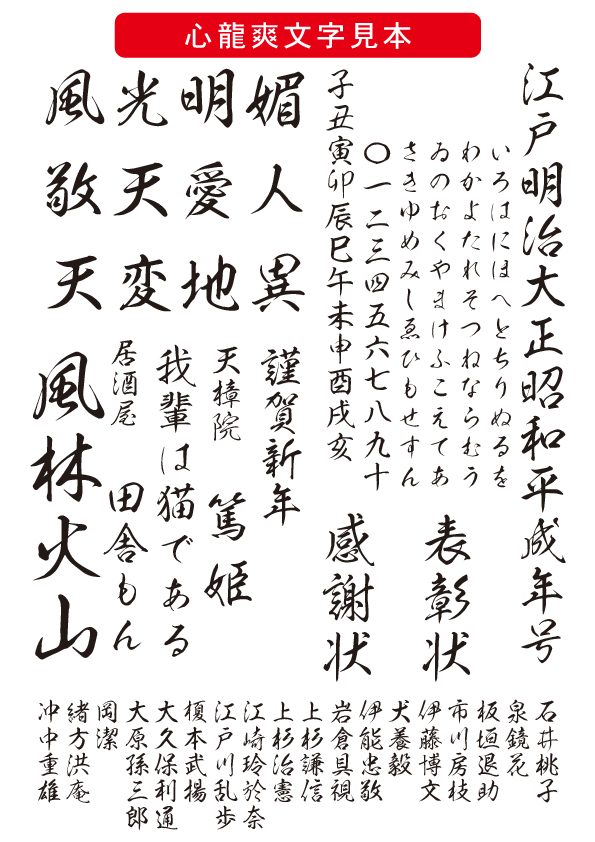 心龍爽文字見本
江戸明治大正昭和平成年号
いろはにほへとちりぬるを
わかよたれそつねならむう
ゐのおくやまけふこえてあ
さきゆめみしゑひもせすん
〇一二三四五六七八九十
子丑寅卯辰巳午未申酉戌亥
媚人異
明愛地
光天変
風敬天
表彰状
感謝状
謹賀新年
天樟院
篤姫
我輩は猫である
居酒屋
田舎もん
風林火山
石井桃子
泉鏡花
板垣退助
市川房枝
伊藤博文
犬養毅
伊能忠敬
岩倉具視
上杉謙信
上杉治憲
江崎玲於奈
江戸川乱歩
榎本武揚
大久保利通
大原孫三郎
岡潔
緒方洪庵
沖中重雄